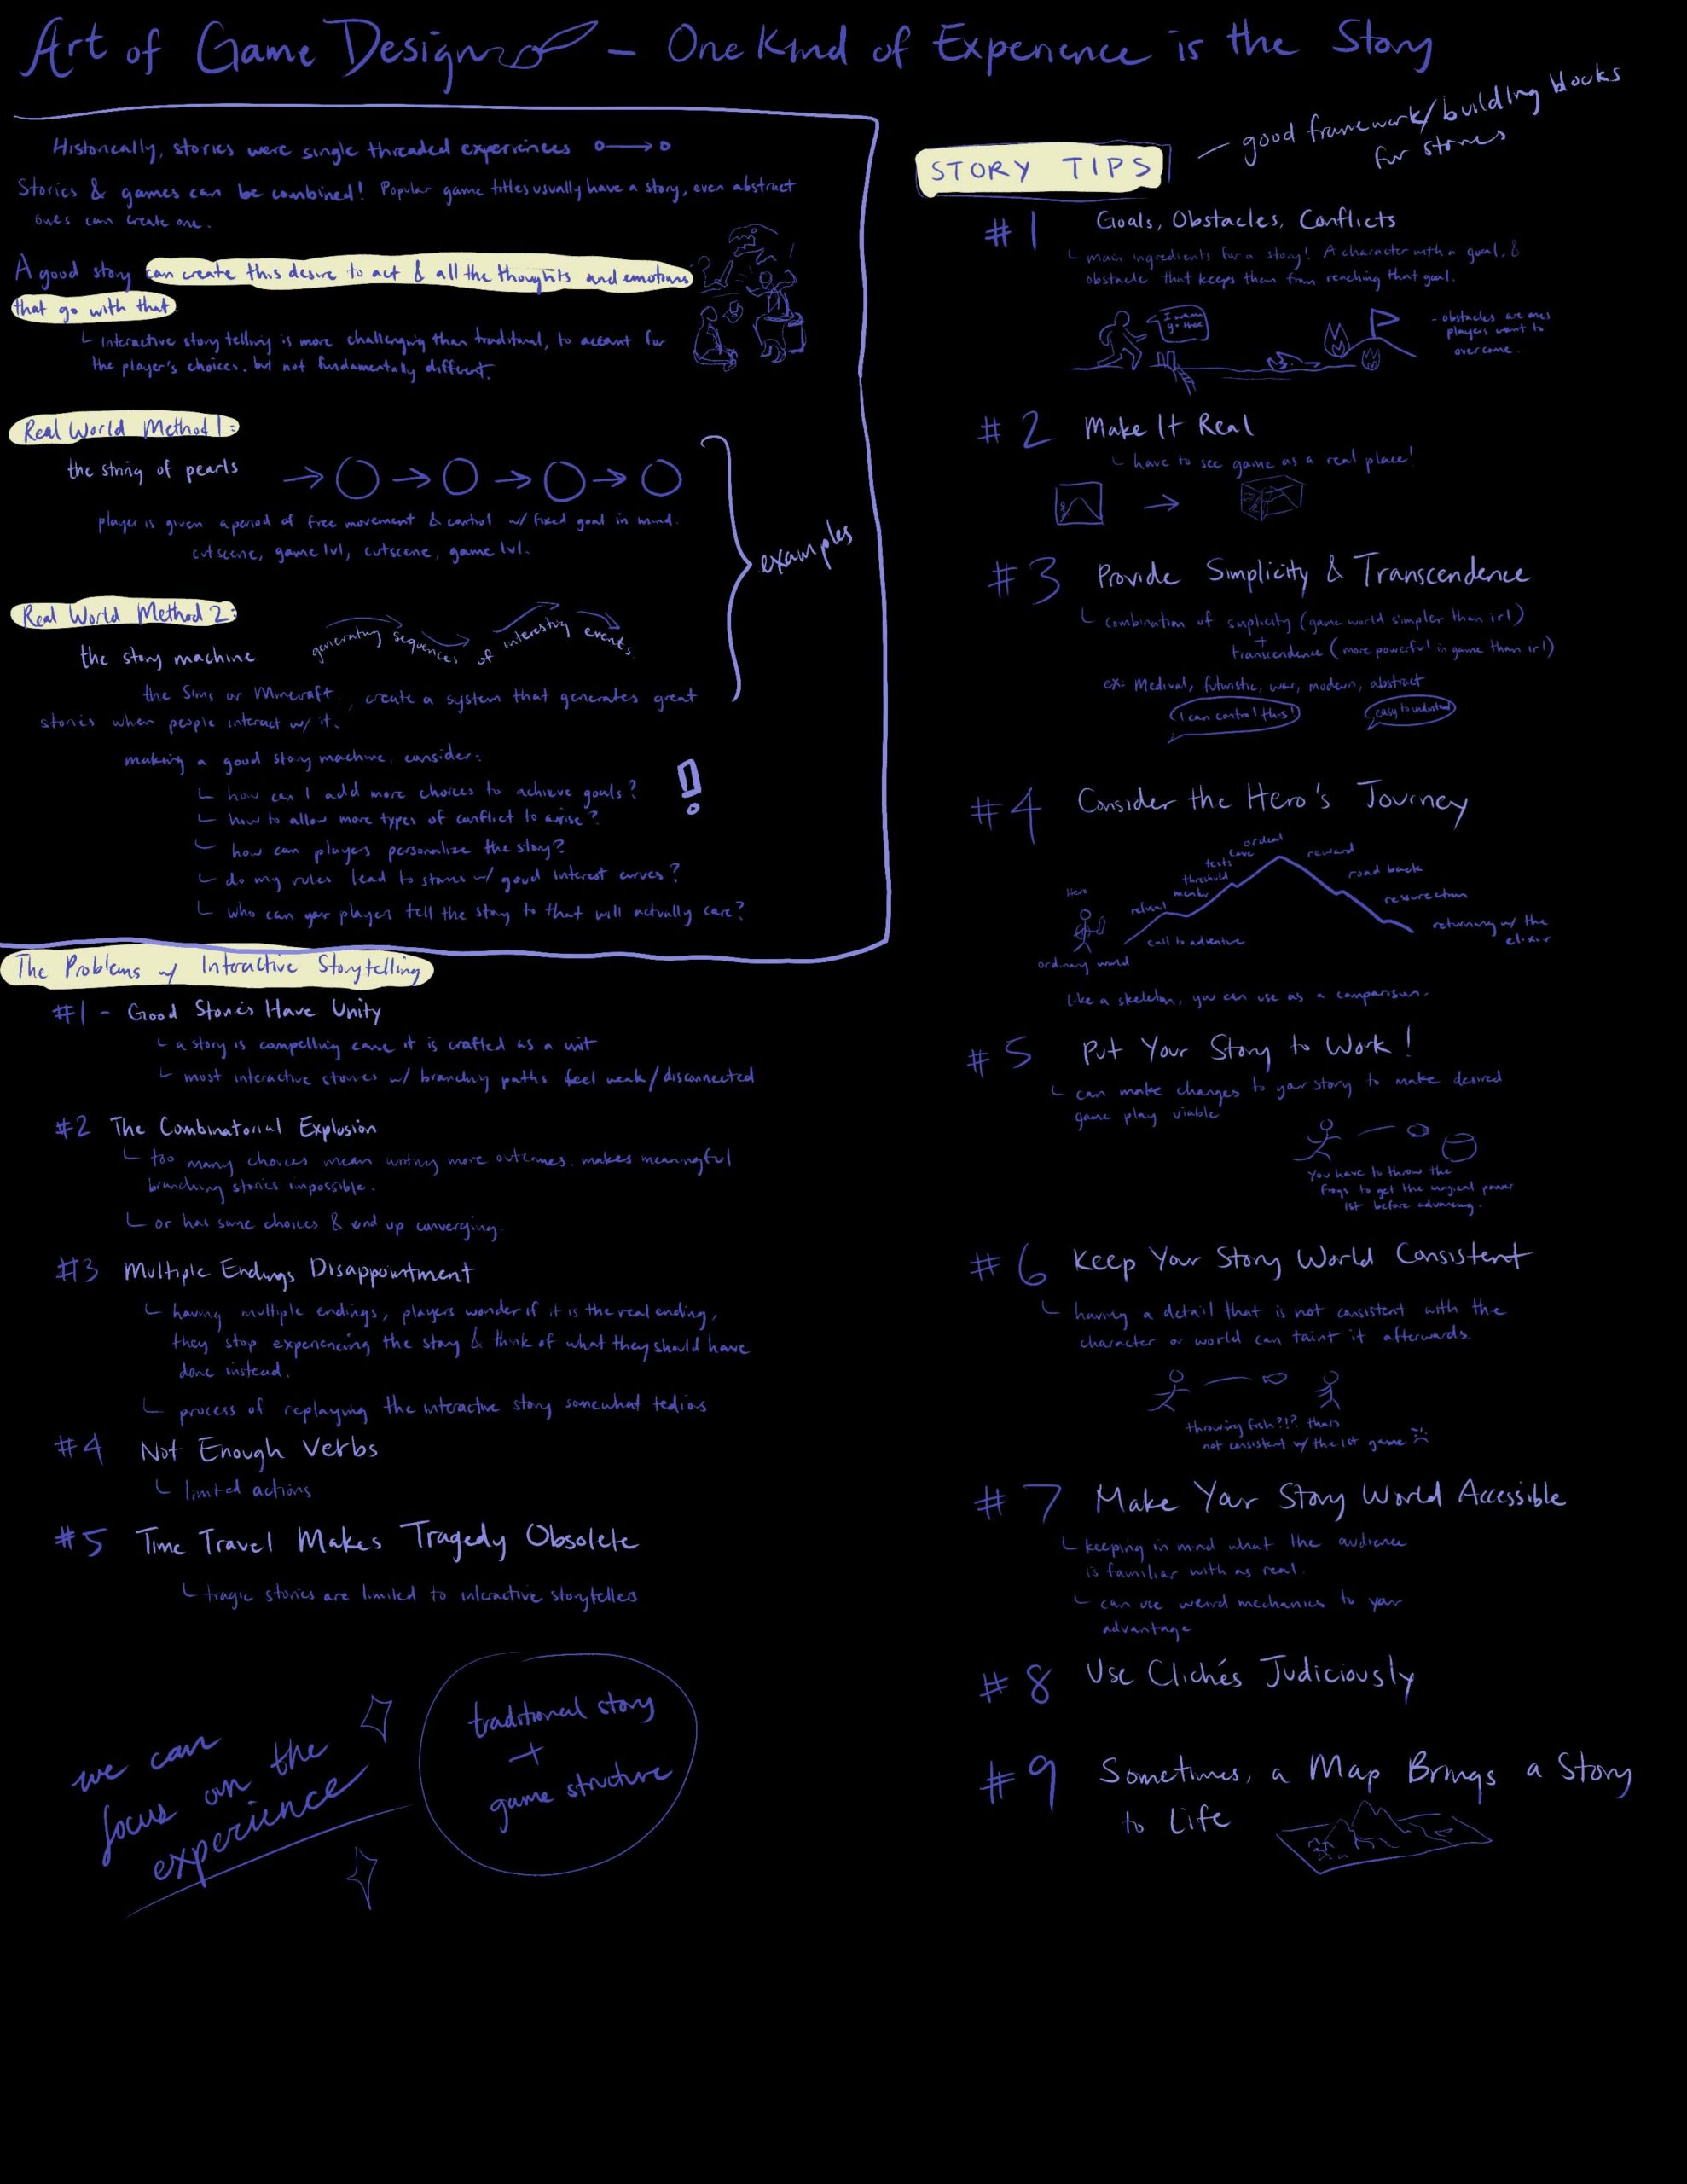 Art of Game Design - One Kind of Experience is the Story
Historically, stories were single threaded experiences
Stories & games can be combined! Popular game titles usually have a story, even abstract
ones can create one.
A good story can create this desire to act & all the thoughts and emotions
that go with that
interactive story telling is more challenging than traditional, to account for
the player's choices. but not fundamentally different.
Real World Method 1:
the string of pearls
player is given a period of free movement & control w/ fixed goal in mind.
cutscene, game lvl, cutscene, game lvl.
Real World Method 2:
the story machine
generating sequences of interesting events
the Sims or Minecraft., create a system that generates great
stories when people interact w/ it.
making a good story machine, consider:
how can I add more choices to achieve goals?
how to allow more types of conflict to arise?
how can players personalize the story?
do my rules lead to stories w/ good interest curves?
who can your players tell the story to that will actually care?
!
examples
The Problems w/ Interactive Storytelling
#1 - Good Stories Have Unity
a story is compelling cause it is crafted as a unit
most interactive stories w/ branching paths feel weak/disconnected
#2 The Combinatorial Explosion
too many choices mean writing more outcomes. makes meaningful
branching stories impossible.
or has same choices & end up converging.
#3 Multiple Endings Disappointment
having multiple endings, players wonder if it is the real ending,
they stop experiencing the story & think of what they should have
done instead.
process of replaying the interactive story somewhat tedious
#4 Not Enough Verbs
limited actions
#5 Time Travel Makes Tragedy Obsolete
tragic stories are limited to interactive storytellers
we can
focus on the
experience
traditional story
+
game structure
STORY TIPS
- good framework/building blocks
for stories
#1 Goals, Obstacles, Conflicts
main ingredients for a story! A character with a goal, &
obstacle that keeps them from reaching that goal.
I wanna
go there
- obstacles are ones
players want to
overcome.
#2 Make It Real
have to see game as a real place!
#3 Provide Simplicity & Transcendence
combination of suplicity (game world simpler than irl)
+
transcendence (more powerful in game than irl)
ex: Medival, futuristic, war, modern, abstract
I can control this!
easy to understand
#4 Consider the Hero's Journey
Hero
ordinary world
call to adventure
refusal
mentor
threshold
tests
cave
ordeal
reward
road back
resurrection
returning w/ the
elixir
like a skeleton, you can use as a comparison.
#5 Put Your Story to Work!
can make changes to your story to make desired
game play viable
You have to throw the
frogs to get the magical power
1st before advancing.
#6 Keep Your Story World Consistent
having a detail that is not consistent with the
character or world can taint it afterwards.
throwing fish?!? thats
not consistent w/ the 1st game
#7 Make Your Story World Accessible
keeping in mind what the audience
is familiar with as real.
can use weird mechanics to your
advantage
#8 Use Clichés Judiciously
#9 Sometimes, a Map Brings a Story
to Life